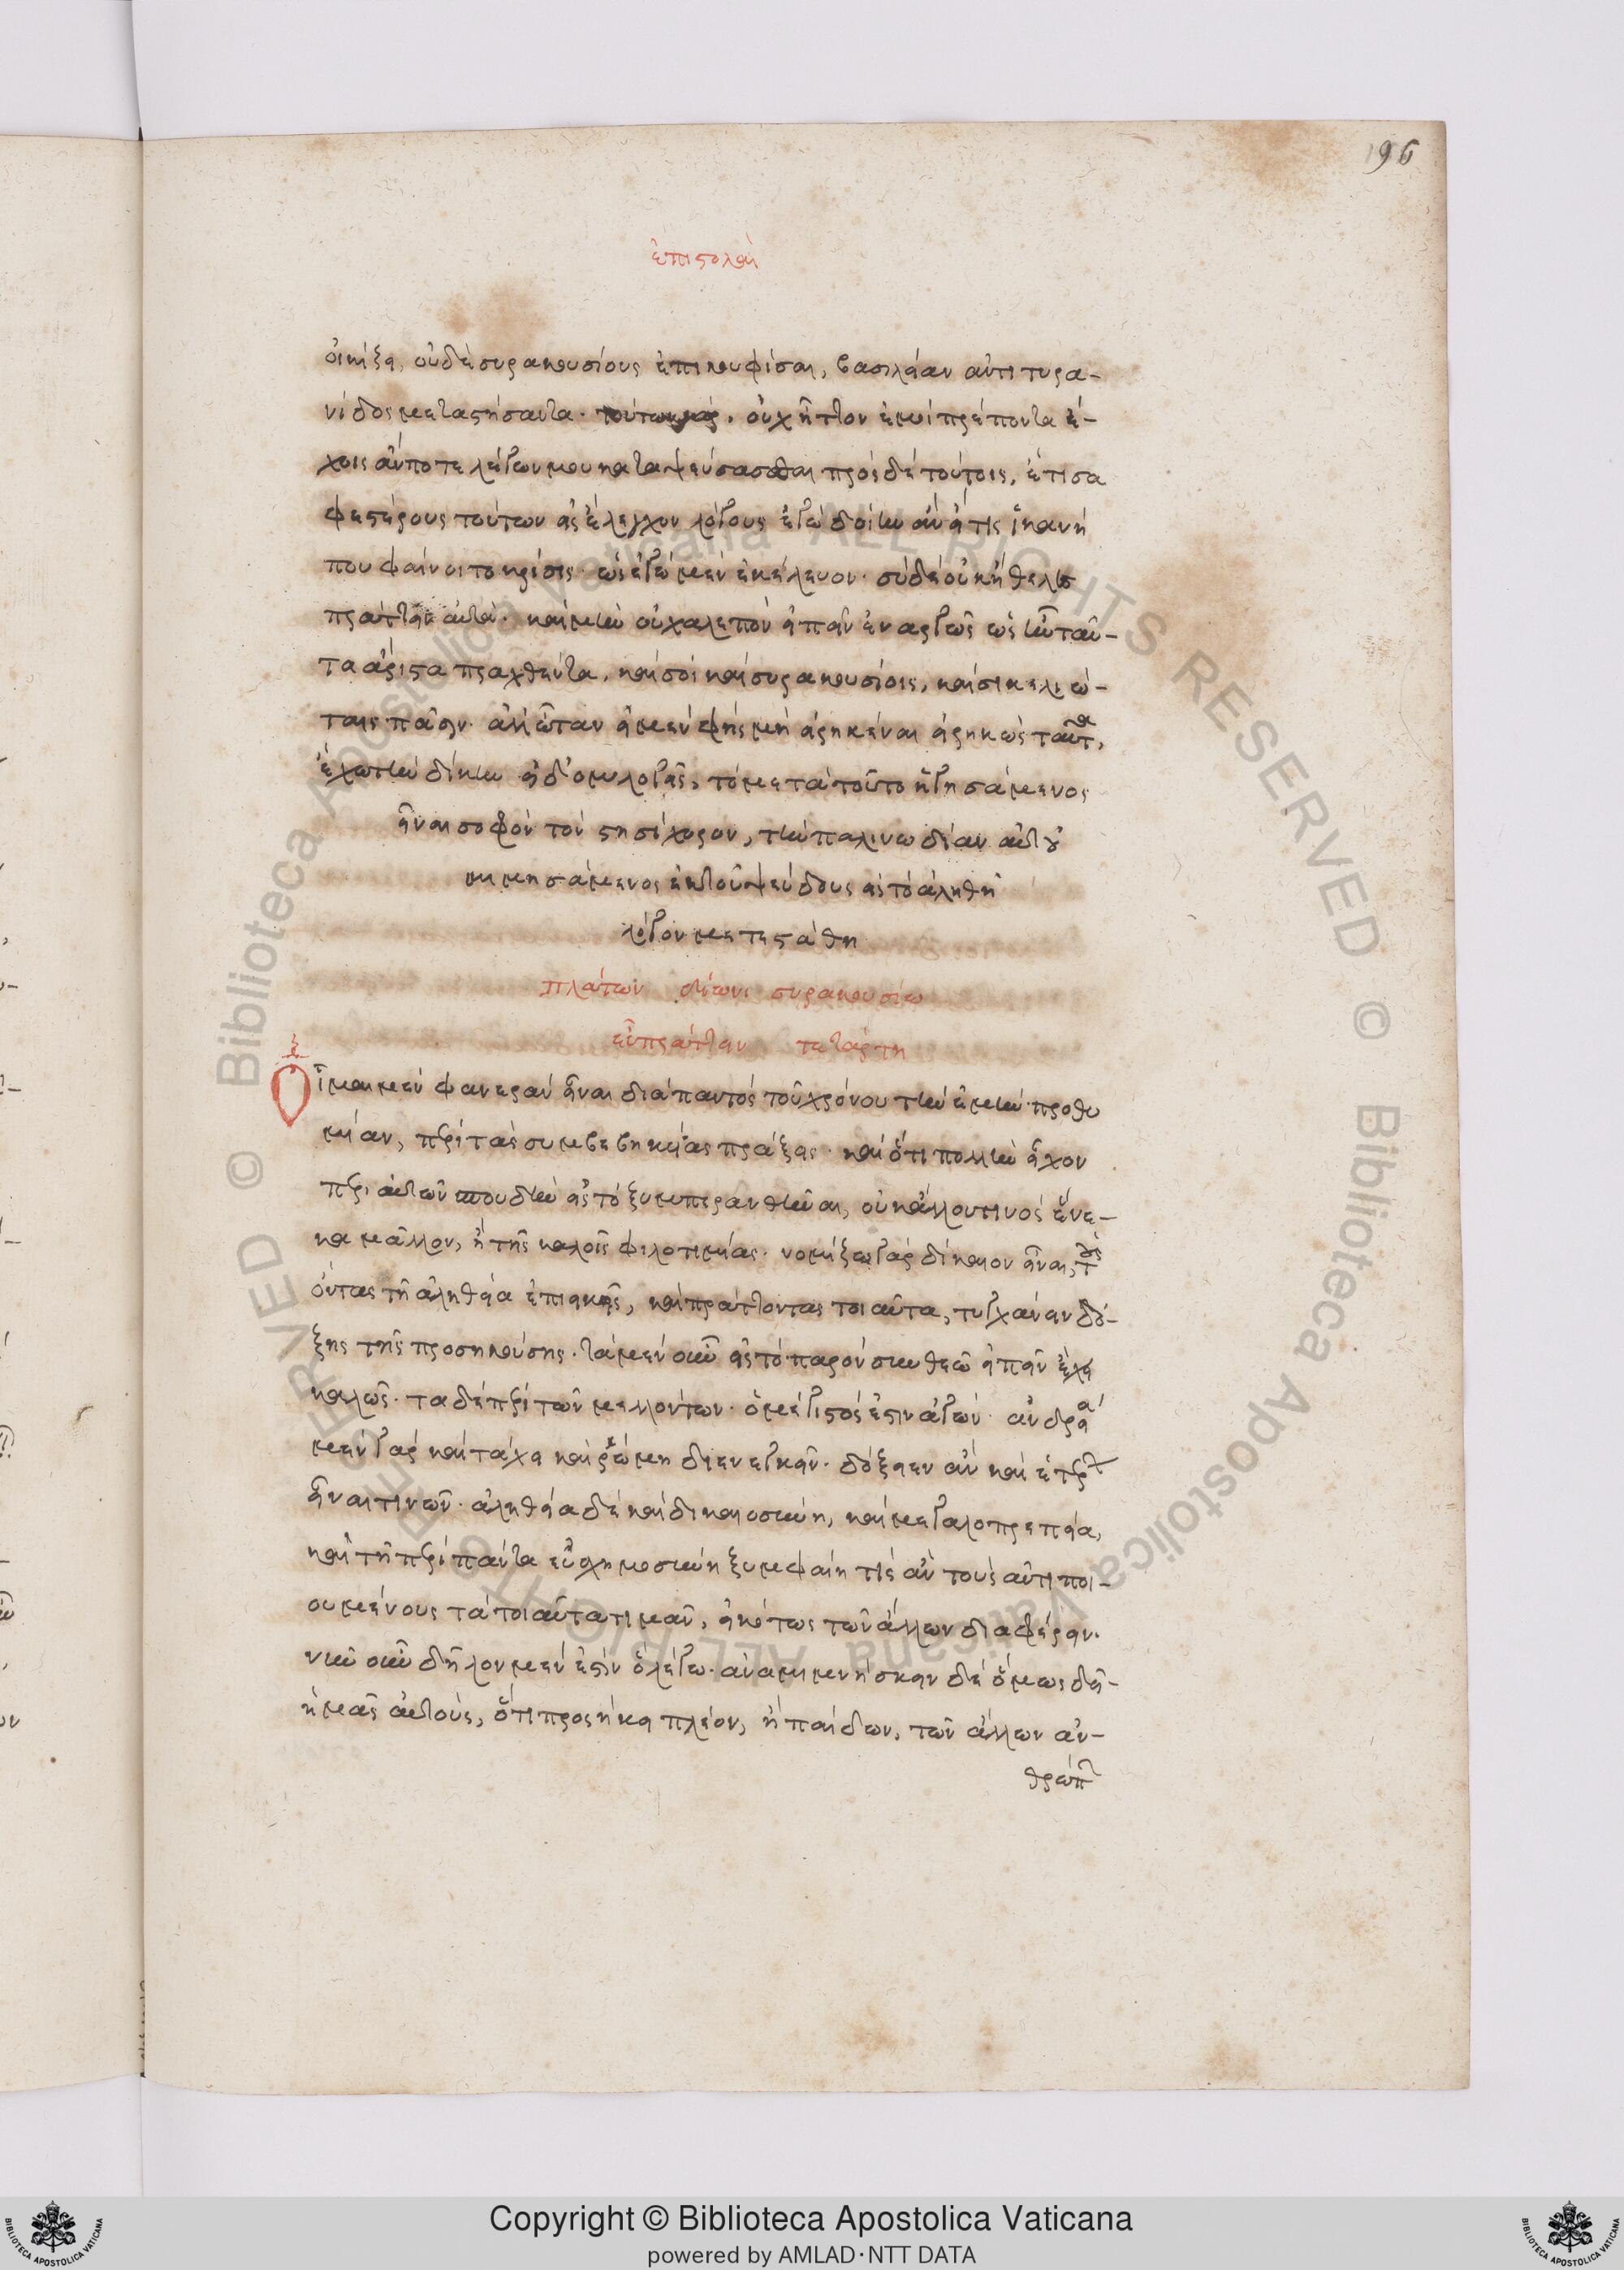 196
ἐπιστολὴ
οἰκίζει, οὐδὲ συρακουσίους ἐπικουφίσαι, βασιλείαν ἀντὶ τυρα-
νίδος μεταστήσαντα. τούτων γάρ. οὐχ ἧττον ἐμοὶ πρέποντα ἔ-
χοις ἄν ποτε λέγων μου καταψεύσασθαι πρὸς δὲ τούτοις, ἔτι σα
φεστέρους τούτων εἰς ἔλεγχον λόγους ἐγὼ δοίην ἂν εἴ τις ἱκανή
που φαίνοιτο κρίσις. ὡς ἐγὼ μὲν ἐκέλευον. σὺ δὲ οὐκ ἤθελες
πράττειν αὐτά. καὶ μὴν οὐ χαλεπὸν εἰπεῖν ἐναργῶς ὡς ἦν ταῦ-
τα ἄριστα πραχθέντα, καὶ σοὶ καὶ συρακουσίοις, καὶ σικελιώ-
ταις πᾶσιν. ἀλλ' ὦταν εἰ μὲν φῂς μὴ εἰρηκέναι εἰρηκὼς ταῦτα,
ἔχω τὴν δίκην εἰ δ' ὁμολογεῖς, τὸ μετὰ τοῦτο ἡγησάμενος
εἶναι σοφὸν τὸν στησίχορον, τὴν παλινωδίαν αὐτοῦ
μιμησάμενος ἐκ τοῦ ψεύδους εἰς τὸ ἀληθῆ
λόγον μετεστάθη
πλάτων δίωνι συρακουσίω
εὖ πράττειν τετάρτη
Οἶμαι μὲν φανερὰν εἶναι διὰ παντὸς τοῦ χρόνου τὴν ἐμὴν προθυ
μίαν, περὶ τὰς συμβεβηκυίας πράξεις. καὶ ὅτι πολλὴν εἶχον
περὶ αὐτῶν σπουδὴν εἰς τὸ ξυμπερανθῆναι, οὐκ ἄλλου τινὸς ἕνε-
κα μᾶλλον, ἢ τῆς καλοῖς φιλοτιμίας. νομίζω γὰρ δίκαιον εἶναι, τοὺς
ὄντας τῆ ἀληθεία ἐπιεικεῖς, καὶ πράττοντας τοιαῦτα, τυγχάνειν δό-
ξης τῆς προσηκούσης. τὰ μὲν οὖν εἰς τὸ παρὸν σὺν θεῶ εἰπεῖν ἔχει
καλῶς. τὰ δὲ περὶ τῶν μελλόντων. ὁ μέγιστός ἐστιν ἀγών. ἀνδρεία
μὲν γὰρ καὶ τάχει καὶ ῥώμη διενεγκεῖν. δόξειεν ἂν καὶ ἑτέρων
εἶναι τινῶν. ἀληθεία δὲ καὶ δικαιοσύνη, καὶ μεγαλοπρεπεία,
καὶ τῆ περὶ πάντα εὐσχημοσύνη ξυμφαίη τὶς ἂν τοὺς ἀντιποι-
ουμένους τὰ τοιαῦτα τιμᾶν, εἰκότως τῶν ἄλλων διαφέρειν.
νῦν οὖν δῆλον μὲν ἐστὶν ὃ λέγω. ἀναμιμνήσκειν δὲ ὅμως δεῖ-
ἡμᾶς αὐτούς, ὅτι προσήκει πλέον, ἢ παίδων, τῶν ἄλλων ἀν-
θρώπων
Copyright © Biblioteca Apostolica Vaticana
powered by AMLAD·NTT DATA
© Biblioteca Apostolica Vaticana ALL RIGHTS RESERVED © Biblioteca Apostolica Vaticana ALL RIGHTS RESERVED
BIBLIOTECA APOSTOLICA VATICANA
BIBLIOTECA APOSTOLICA VATICANA